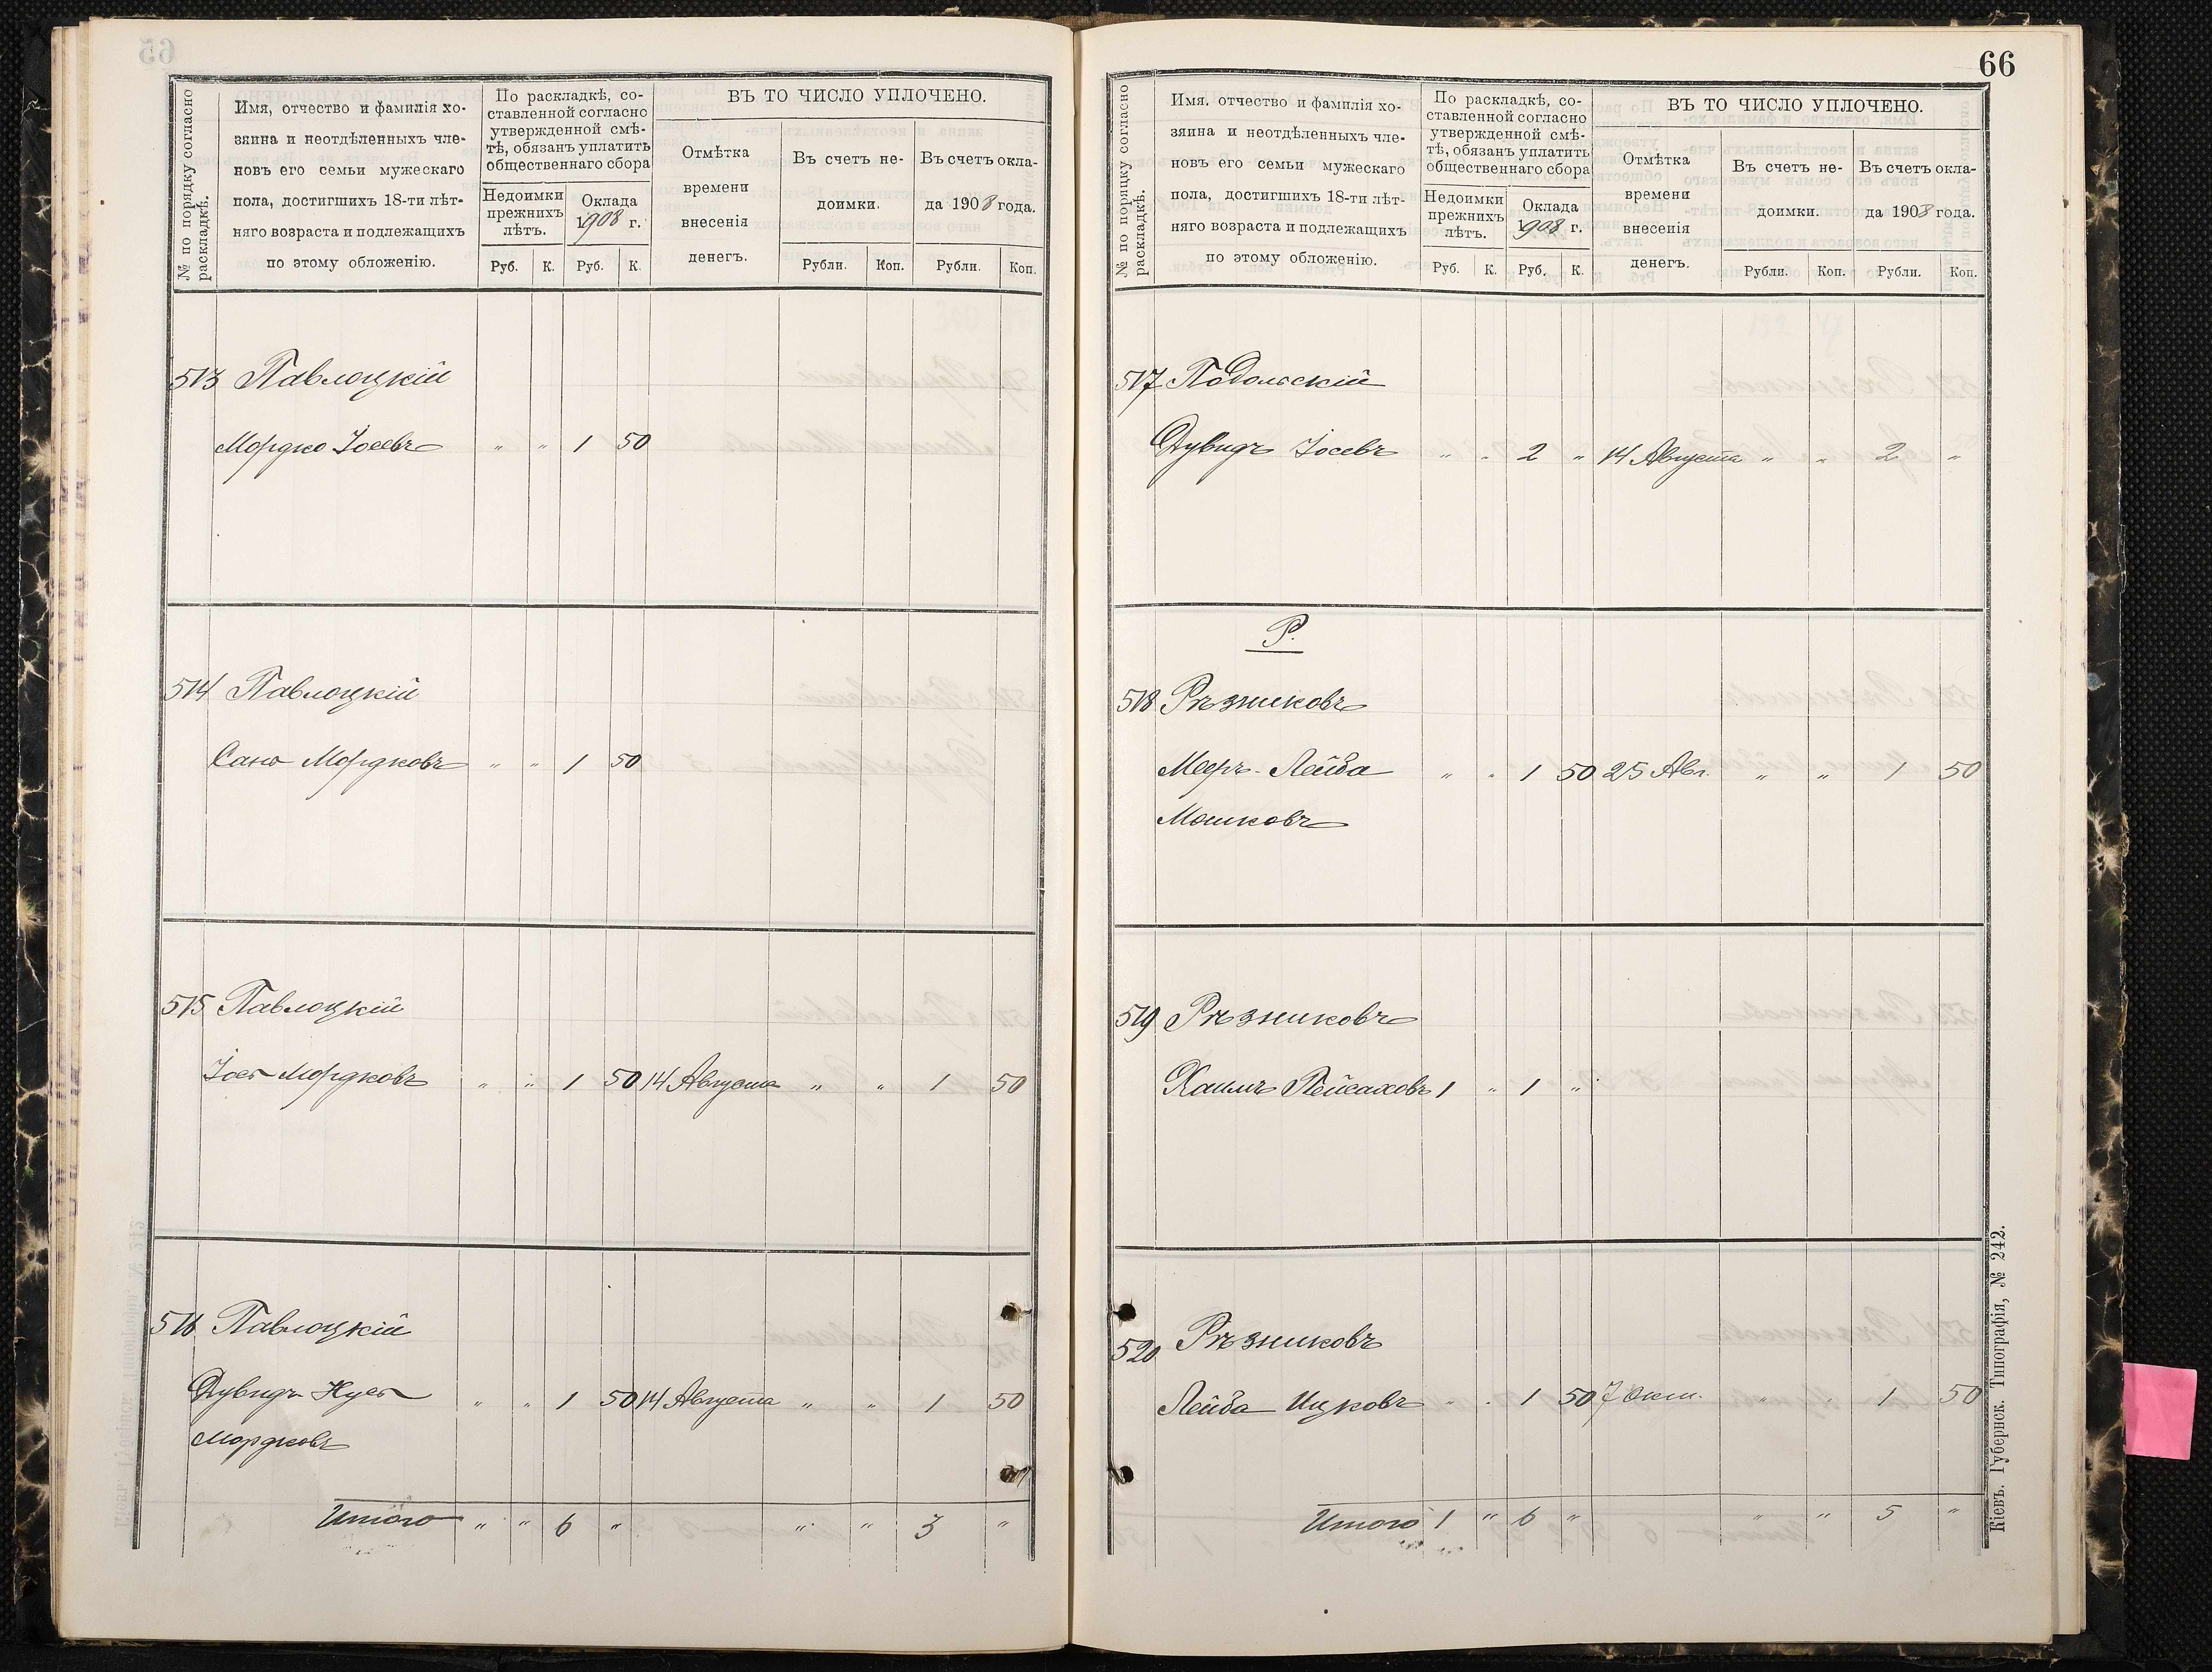 № по порядку согласно
раскладкѣ.
Имя, отчество и фамилія хо-
зяина и неотдѣленныхъ чле-
новъ его семьи мужескаго
пола, достигшихъ 18-ти лѣт-
няго возраста и подлежащихъ
по этому обложенію.
По раскладкѣ, со-
ставленной согласно
утвержденной смѣ-
тѣ, обязанъ уплатить
общественнаго сбора
Недоимки
прежнихъ
лѣтъ.
Оклада
1908 г.
Руб. К. Руб. К.
ВЪ ТО ЧИСЛО УПЛОЧЕНО.
Отмѣтка
времени
внесенія
денегъ.
Въ счетъ не-
доимки.
Въ счетъ окла-
да 1908 года.
Рубли. Коп. Рубли. Коп.
513 Павлоцкій
Мордко Іосевъ " " 1 50
514 Павлоцкій
Сано Мордковъ " " 1 50
515 Павлоцкій
Іось Мордковъ " " 1 50 14 Августа " " 1 50
516 Павлоцкій
Дувидъ Нусь " " 1 50 14 Августа " " 1 50
Мордковъ
Итого " " 6 " " " 3 "
66
№ по порядку согласно
раскладкѣ.
Имя, отчество и фамилія хо-
зяина и неотдѣленныхъ чле-
новъ его семьи мужескаго
пола, достигшихъ 18-ти лѣт-
няго возраста и подлежащихъ
по этому обложенію.
По раскладкѣ, со-
ставленной согласно
утвержденной смѣ-
тѣ, обязанъ уплатить
общественнаго сбора
Недоимки
прежнихъ
лѣтъ.
Оклада
1908 г.
Руб. К. Руб. К.
ВЪ ТО ЧИСЛО УПЛОЧЕНО.
Отмѣтка
времени
внесенія
денегъ.
Въ счетъ не-
доимки.
Въ счетъ окла-
да 1908 года.
Рубли. Коп. Рубли. Коп.
517 Подольскій
Дувидъ Іосевъ " " 2 " 14 Августа " " 2 "
Р.
518 Рѣзниковъ
Мееръ-Лейба " " 1 50 25 Авг. " " 1 50
Мошковъ
519 Рѣзниковъ
Хаимъ Пейсаховъ 1 " 1 "
520 Рѣзниковъ
Лейба Ицковъ " " 1 50 7 Окт. " " 1 50
Итого 1 " 6 " " " 5 "
Кіевъ. Губернск. Типографія, № 242.